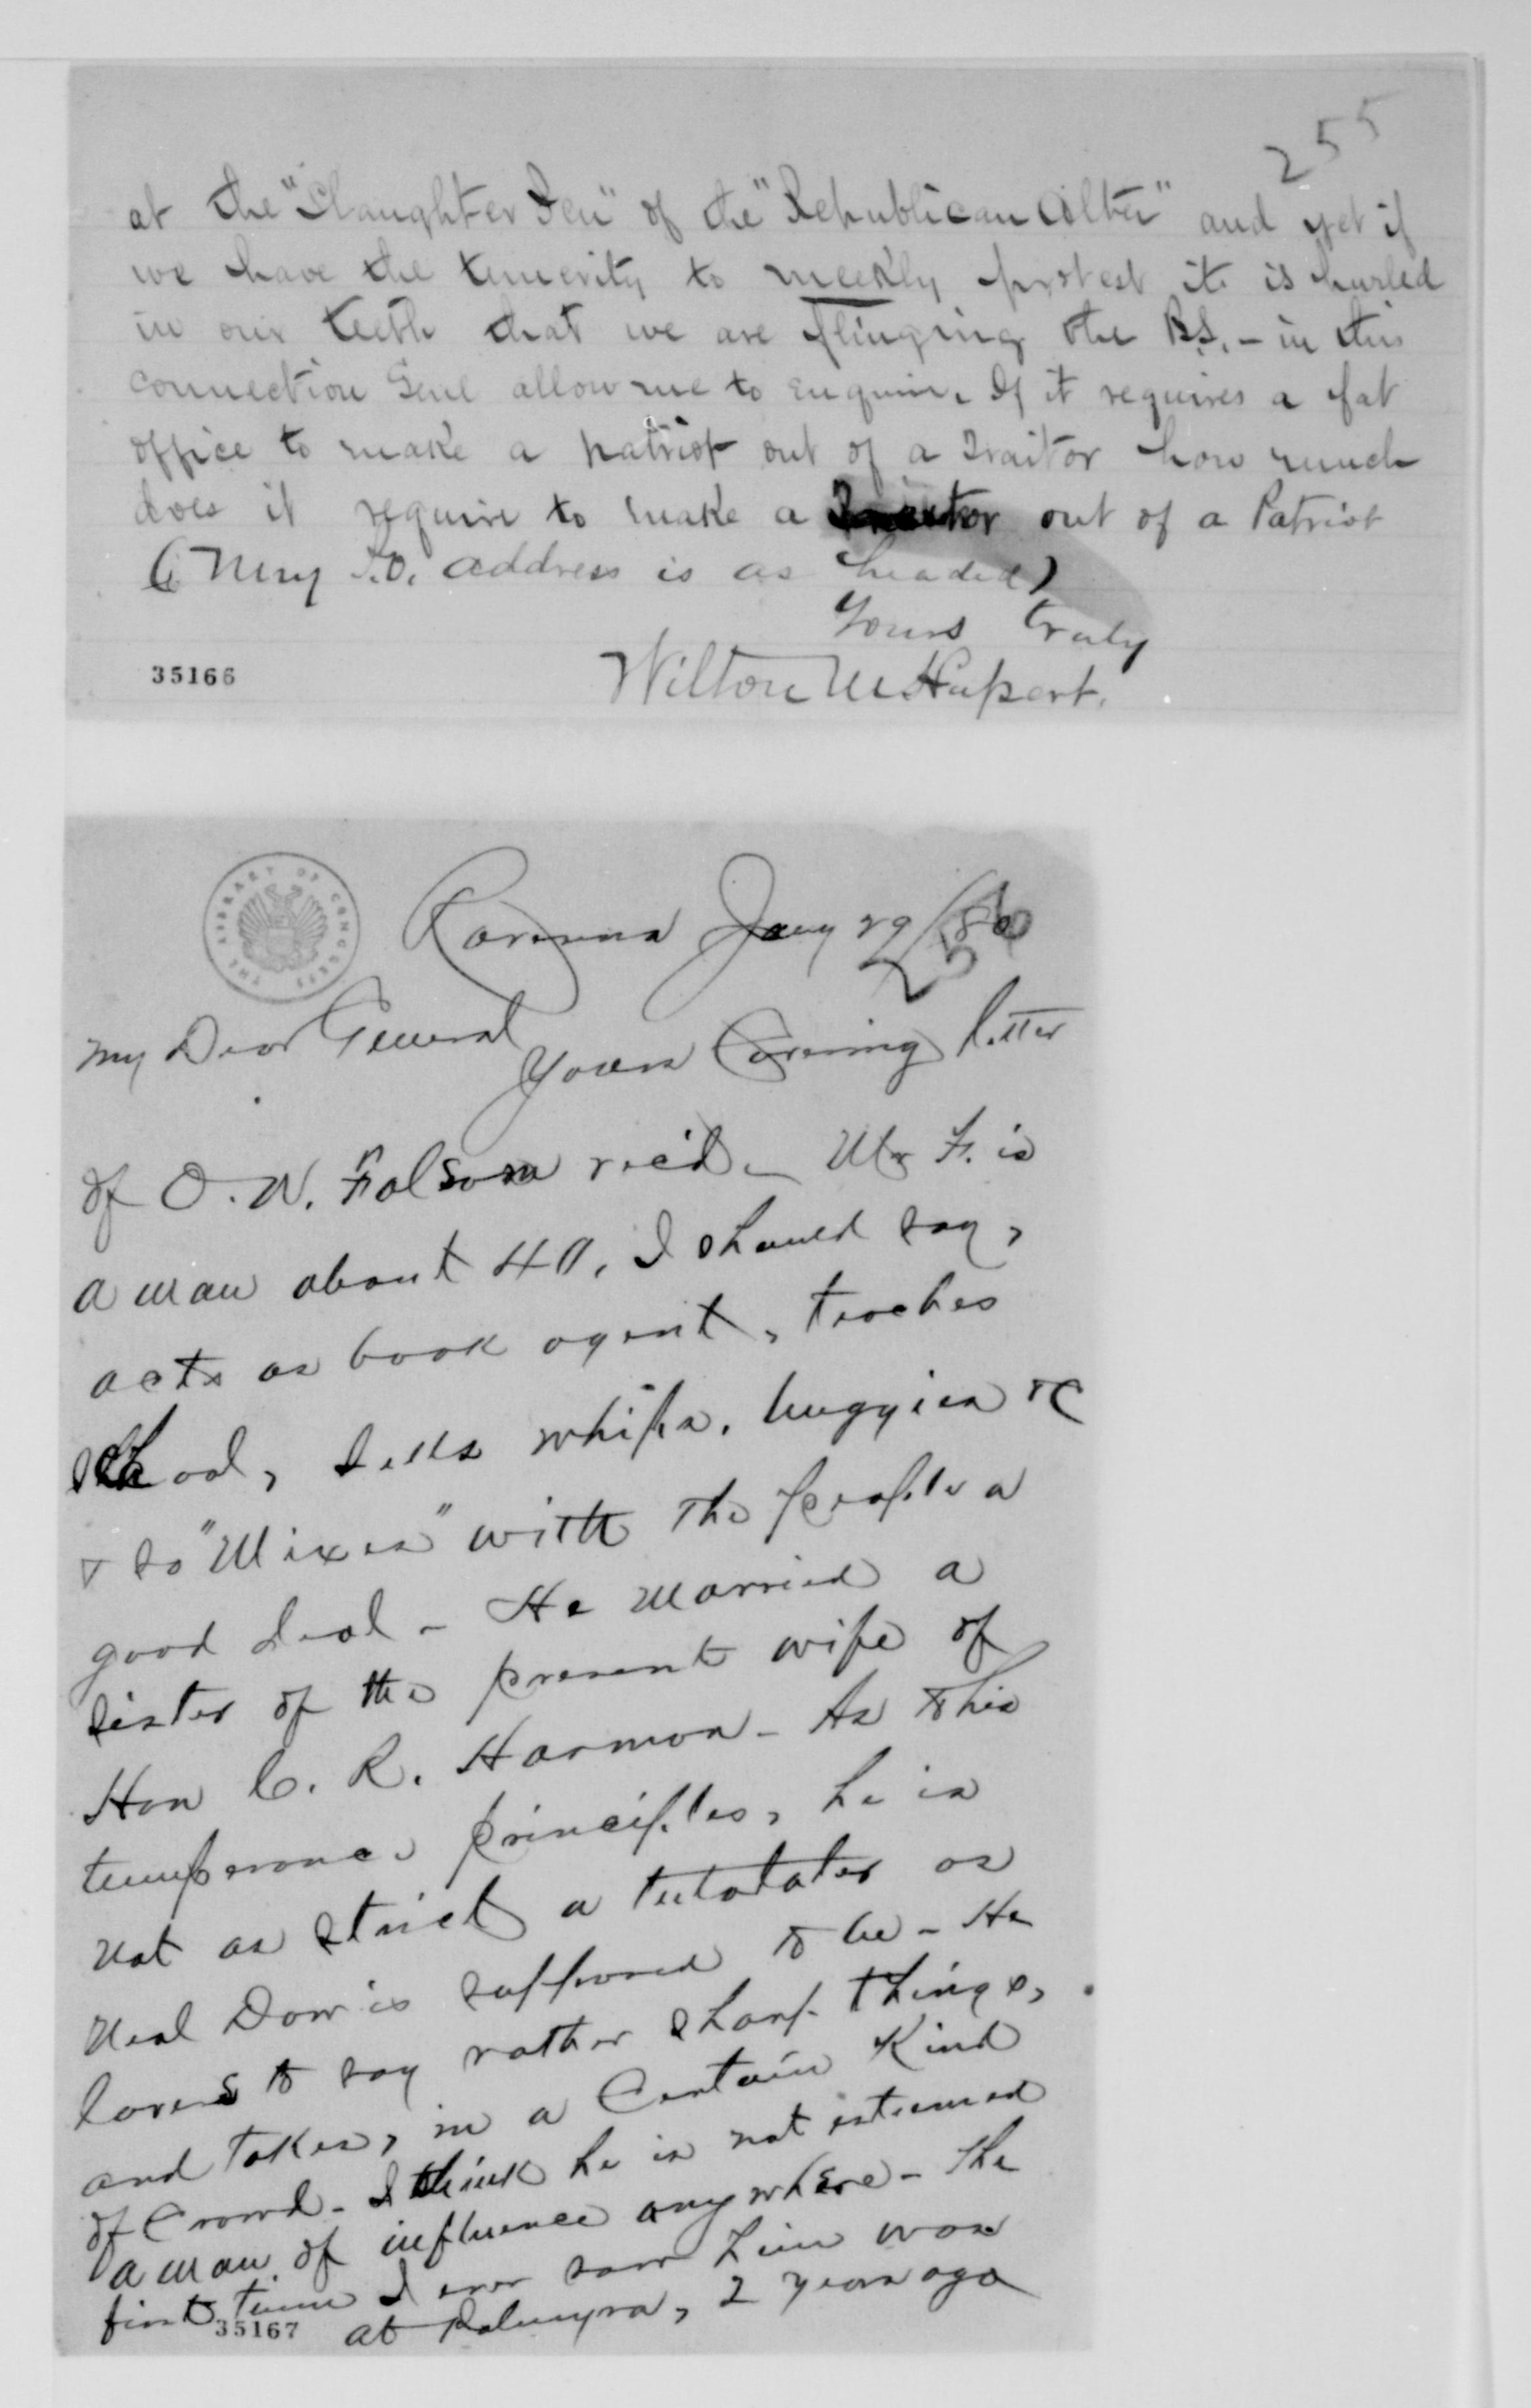 255
at the "Slaughter Pen" of the "Republican Alter" and yet if
we have the temerity to meekly protest it is hurled
in our teeth that we are flinging the B.S. – in this
connection Genl allow me to enquire. If it requires a fat
office to make a patriot out of a Traitor how much
does it require to make a Traitor out of a Patriot
(My P.O. address is as headed)
Yours truly
Wilton M Hupert.
35166
THE LIBRARY OF CONGRESS
Ravenna Jany 29/80
256
My Dear General
Yours Covering letter
of O. W. Folsom rec'd – Mr F. is
a man about 40, I should say,
acts as book agent, teaches
school, sells whips, buggies &c
& so "Mixes" with the people a
good deal – He married a
sister of the present wife of
Hon C. R. Harmon – As to his
temperance principles, he is
not as strict a tetotaler as
Neal Dow is supposed to be – He
loves to say rather sharp things,
and takes, in a Certain Kind
of Crowd – I think he is not esteemed
a man of influence anywhere – The
first time I ever saw him was
at Palmyra, 2 years ago
35167